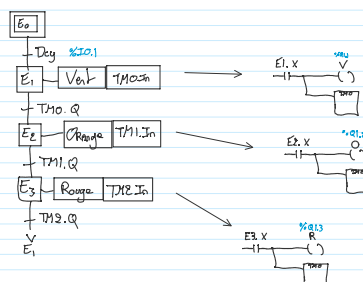 E0
Dcy %I0.1
E1 Vert TM0.In
TM0.Q
E2 Orange TM1.In
TM1.Q
E3 Rouge TM2.In
TM2.Q
E1
E1.X V
E2.X O
E3.X %Q1.3 R